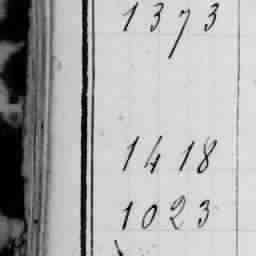 1373
1418
1023